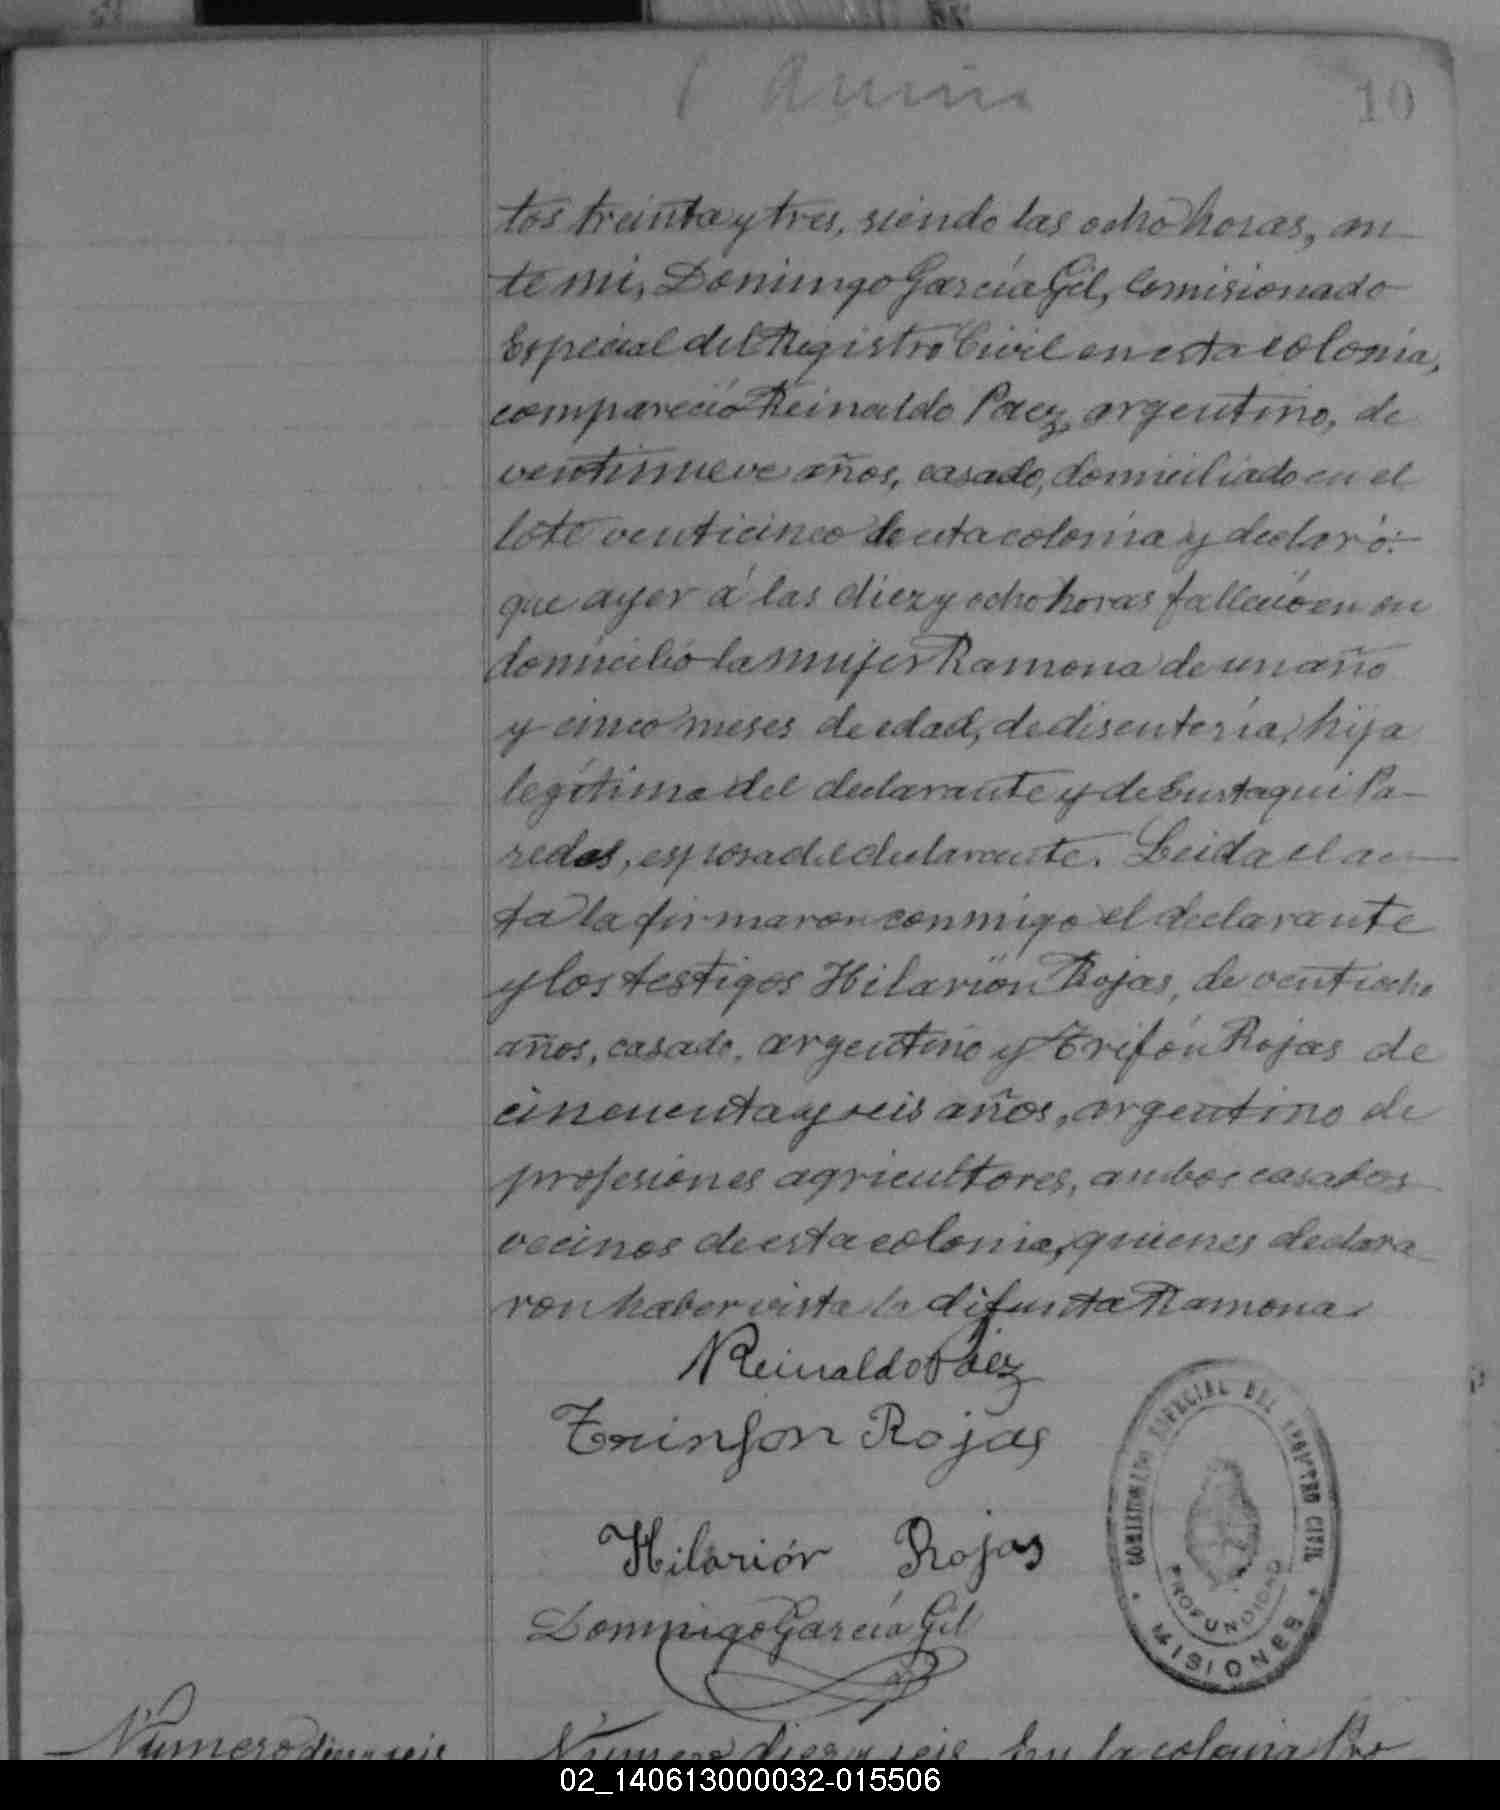 10
tos treinta y tres, siendo las ocho horas, an
te mi, Domingo García Gil, Comisionado
Especial del Registro Civil en esta colonia,
compareció Reinaldo Paez, argentino, de
ventinueve años, casado, domiciliado en el
lote venticinco de esta colonia y declaró:
que ayer á las diez y ocho horas falleció en su
domicilio la mujer Ramona de un año
y cinco meses de edad, de disentería, hija
legítima del declarante y de Eustaqui Pa-
redes, esposa del declarante. Leida el ac-
ta la firmaron conmigo el declarante
y los testigos Hilarión Rojas, de ventiocho
años, casado, argentino y Trifón Rojas de
cincuenta y seis años, argentino de
profesiones agricultores, ambos casados
vecinos de esta colonia, quienes declara-
ron haber vista la difunta Ramona.
Reinaldo Páez
Trinfon Rojas
Hilarión Rojas
Domingo García Gil
COMISIONADO ESPECIAL DEL REGISTRO CIVIL
PROFUNDIDAD
MISIONES
Número diez y seis
Número diez y seis En la colonia
02_140613000032-015506